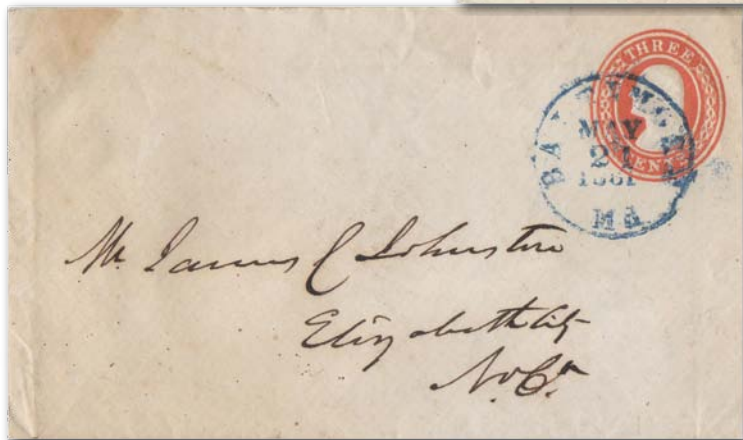 THREE
CENTS
BALTIMORE
MAY
21
1861
Md.
Mr. James C Johnston
Elizabeth City
N. Ca.